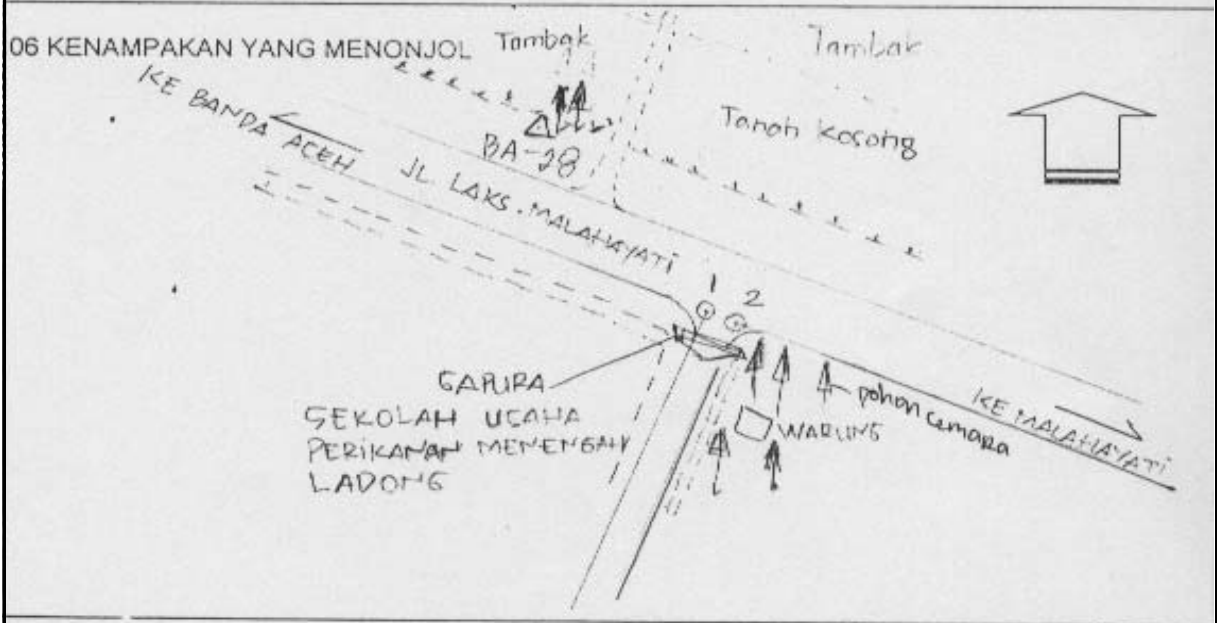 06 KENAMPAKAN YANG MENONJOL
Tambak
Tambak
KE BANDA ACEH
BA-28
Tanah kosong
JL LAKS. MALAHAYATI
1
2
GAPURA
SEKOLAH USAHA
PERIKANAN MENENGAH
LADONG
WARUNG
pohon cemara
KE MALAHAYATI